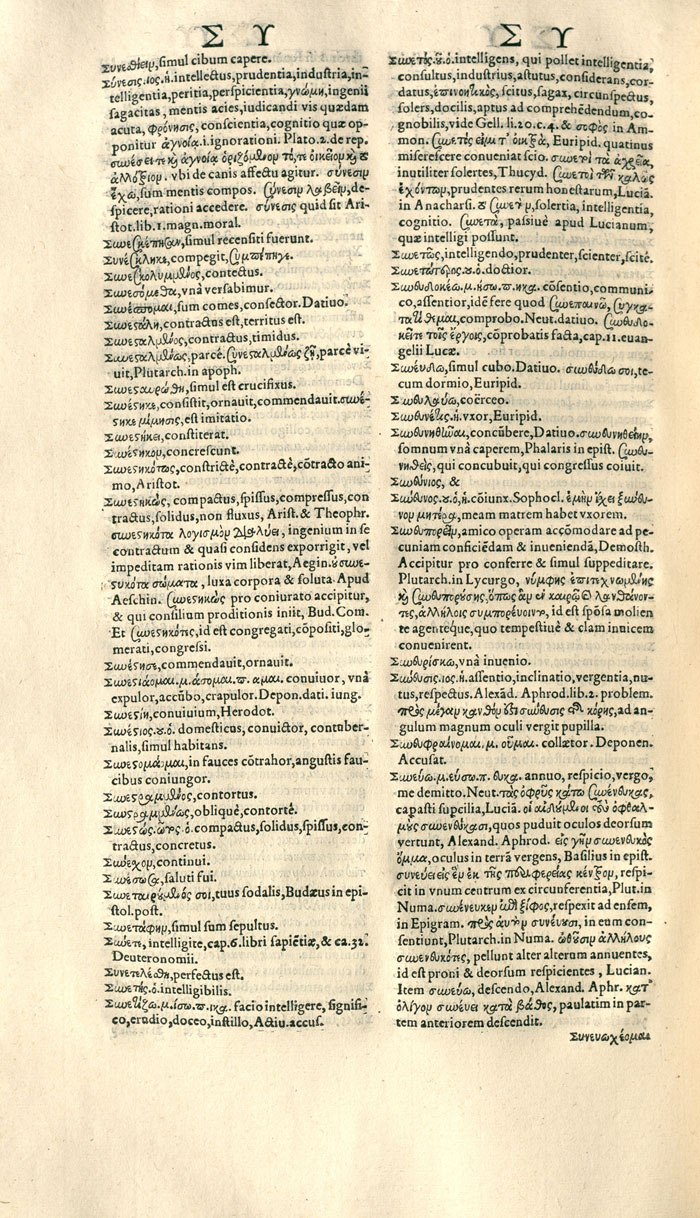 Σ Υ
Συνεσθίειν, simul cibum capere.
Σύνεσις. ιος. ἡ. intellectus, prudentia, industria, in-
telligentia, peritia, perspicientia, γνώμη, ingenii
sagacitas, mentis acies, iudicandi vis quædam
acuta, φρόνησις, conscientia, cognitio quæ op-
ponitur ἀγνοία. i. ignorationi. Plato. 2. de rep.
συνέσει τε κỳ ἀγνοίᾳ ὁριζόμενον τό, τε οἰκεῖον κỳ τὸ
ἀλλότριον. vbi de canis affectu agitur. σύνεσιν
ἔχω, sum mentis compos. σύνεσιν λαβεῖν, de-
spicere, rationi accedere. σύνεσις quid sit Ari-
stot. lib. 1. magn. moral.
simul recensiti fuerunt.
Συνέσκληκε, compegit, συμπέπηγε.
contectus.
Συνεσόμεθα, vnà versabimur.
Συνέσομαι, sum comes, consector. Datiuo.
Συνεστάλη, contractus est, territus est.
Συνεσταλμένος, contractus, timidus.
Συνεσταλμένως, parcè. συνεσταλμένως ζῆν, parcè vi-
uit, Plutarch. in apoph.
Συνεσταυρώθη, simul est crucifixus.
Συνέστηκε, consistit, ornauit, commendauit. συνέ-
στηκε μίμησις, est imitatio.
Συνεστήκει, constiterat.
Συνέστηκον, concrescunt.
Συνεστηκότως, constrictè, contractè, cōtracto ani-
mo, Aristot.
Συνεστηκὼς, compactus, spissus, compressus, con
tractus, solidus, non fluxus, Arist. & Theophr.
συνεστηκότα λογισμὸν διαλύει, ingenium in se
contractum & quasi considens exporrigit, vel
impeditam rationis vim liberat, Aegin. οὐ συνε-
στηκότα σώματα, luxa corpora & soluta. Apud
Aeschin. συνεστηκὼς pro coniurato accipitur,
& qui consilium proditionis iniit, Bud. Com.
Et συνεστηκότες, id est congregati, cōpositi, glo-
merati, congressi.
Συνέστησε, commendauit, ornauit.
Συνεστιάομαι. μ. άσομαι. π. αμαι. conuiuor, vnà
expulor, accūbo, crapulor. Depon. dati. iung.
Συνεστίη, conuiuium, Herodot.
Συνέστιος. ου. ὁ. domesticus, conuictor, contuber-
nalis, simul habitans.
in fauces cōtrahor, angustis fau-
cibus coniungor.
Συνεστραμμένος, contortus.
Συνεστραμμένως, obliquè, contortè.
Συνεστώς. ῶτος. ὁ. compactus, solidus, spissus, con-
tractus, concretus.
Σύνεχον, continui.
Συνέσωσα, saluti fui.
Συνεταιρισμένος σοι, tuus sodalis, Budæus in epi-
stol. post.
Συνετάφην, simul sum sepultus.
Σύνετε, intelligite, cap. 6. libri sapiētiæ, & ca. 32.
Deuteronomii.
Συνετελέσθη, perfectus est.
Συνετής. ὁ. intelligibilis.
Συνετίζω. μ. ίσω. π. ικα. facio intelligere, signifi-
co, erudio, doceo, instillo, Actiu. accus.
Σ Υ
Συνετός. οῦ. ὁ. intelligens, qui pollet intelligentia,
consultus, industrius, astutus, considerans, cor-
datus, ἐπινοητικὸς, scitus, sagax, circunspectus,
solers, docilis, aptus ad comprehēdendum, co-
gnobilis, vide Gell. li. 20. c. 4. & σοφὸς in Am-
mon. συνετός εἰμι τ' οἰκτρὰ, Euripid. quatinus
miserescere conueniat scio. συνετοὶ τὰ ἀχρεῖα,
inutiliter solertes, Thucyd. συνετοὶ τῶν καλῶς
ἐχόντων, prudentes rerum honestarum, Luciā.
in Anacharsi. τὸ συνετὸν, solertia, intelligentia,
cognitio. συνετὰ, passiuè apud Lucianum,
quæ intelligi possunt.
Συνετῶς, intelligendo, prudenter, scienter, scitè.
Συνετώτερος. ου. ὁ. doctior.
Συνευδοκέω. μ. ήσω. π. ηκα. cōsentio, communi-
co, assentior, idē fere quod συνεπαινῶ, συγκα-
τατίθεμαι, comprobo. Neut. datiuo. συνευδο-
κεῖτε τοῖς ἔργοις, cōprobatis facta, cap. 11. euan-
gelii Lucæ.
Συνεύδω, simul cubo. Datiuo. συνεύδω σοι, te-
cum dormio, Euripid.
coërceo.
Συνευνέτις. ἡ. vxor, Euripid.
Συνευνηθῆναι, concūbere, Datiuo. συνευνηθείην,
somnum vnà caperem, Phalaris in epist. συνευ-
νηθεὶς, qui concubuit, qui congressus coiuit.
Συνεύνιος, &
Σύνευνος. ου. ὁ, ἡ. cōiunx. Sophocl. ἐμὴν ἔχει ξύνευ-
νον μητέρα, meam matrem habet vxorem.
Συνευπορεῖν, amico operam accōmodare ad pe-
cuniam conficiēdam & inueniendā, Demosth.
Accipitur pro conferre & simul suppeditare.
Plutarch. in Lycurgo, νύμφης ἐπιτεχνωμένης
κỳ συνευπορούσης, ὅπως ἂν ἐν καιρῷ λανθάνον-
τες, ἀλλήλοις συμπορεύοιντο, id est spōsa molien
te agenteque, quo tempestiuè & clam inuicem
conuenirent.
Συνευρίσκω, vnà inuenio.
Συνεύσις. ιος. ἡ. assentio, inclinatio, vergentia, nu-
tus, respectus. Alexād. Aphrod. lib. 2. problem.
πρὸς μέγαν κανθὸν σύνευσις τῆς κόρης, ad an-
gulum magnum oculi vergit pupilla.
Συνευφραίνομαι. μ. οῦμαι. collætor. Deponen.
Accusat.
Συνεύω. μ. εύσω. π. ευκα. annuo, respicio, vergo,
me demitto. Neut. τὰς ὀφρῦς κάτω συνένευκας,
capasti supcilia, Luciā. οἱ αἰδούμενοι τοὺς ὀφθαλ-
μοὺς συνενεύκασι, quos puduit oculos deorsum
vertunt, Alexand. Aphrod. εἰς γῆν συνενευκὸς
ὄμμα, oculus in terrā vergens, Basilius in epist.
συνεύει εἰς ἓν ἐκ τῆς περιφερείας κέντρον, respi-
cit in vnum centrum ex circumferentia, Plut. in
Numa. συνένευκεν ἐπὶ ξίφος, respexit ad ensem,
in Epigram. πρὸς αὐτὴν συνεύουσι, in eum con-
sentiunt, Plutarch. in Numa. ὠθοῦσιν ἀλλήλους
συνενευκότες, pellunt alter alterum annuentes,
id est proni & deorsum respicientes, Lucian.
Item συνεύω, descendo, Alexand. Aphr. κατ'
ὀλίγον συνεύει κατὰ βάθος, paulatim in par-
tem anteriorem descendit.
Συνευωχέομαι